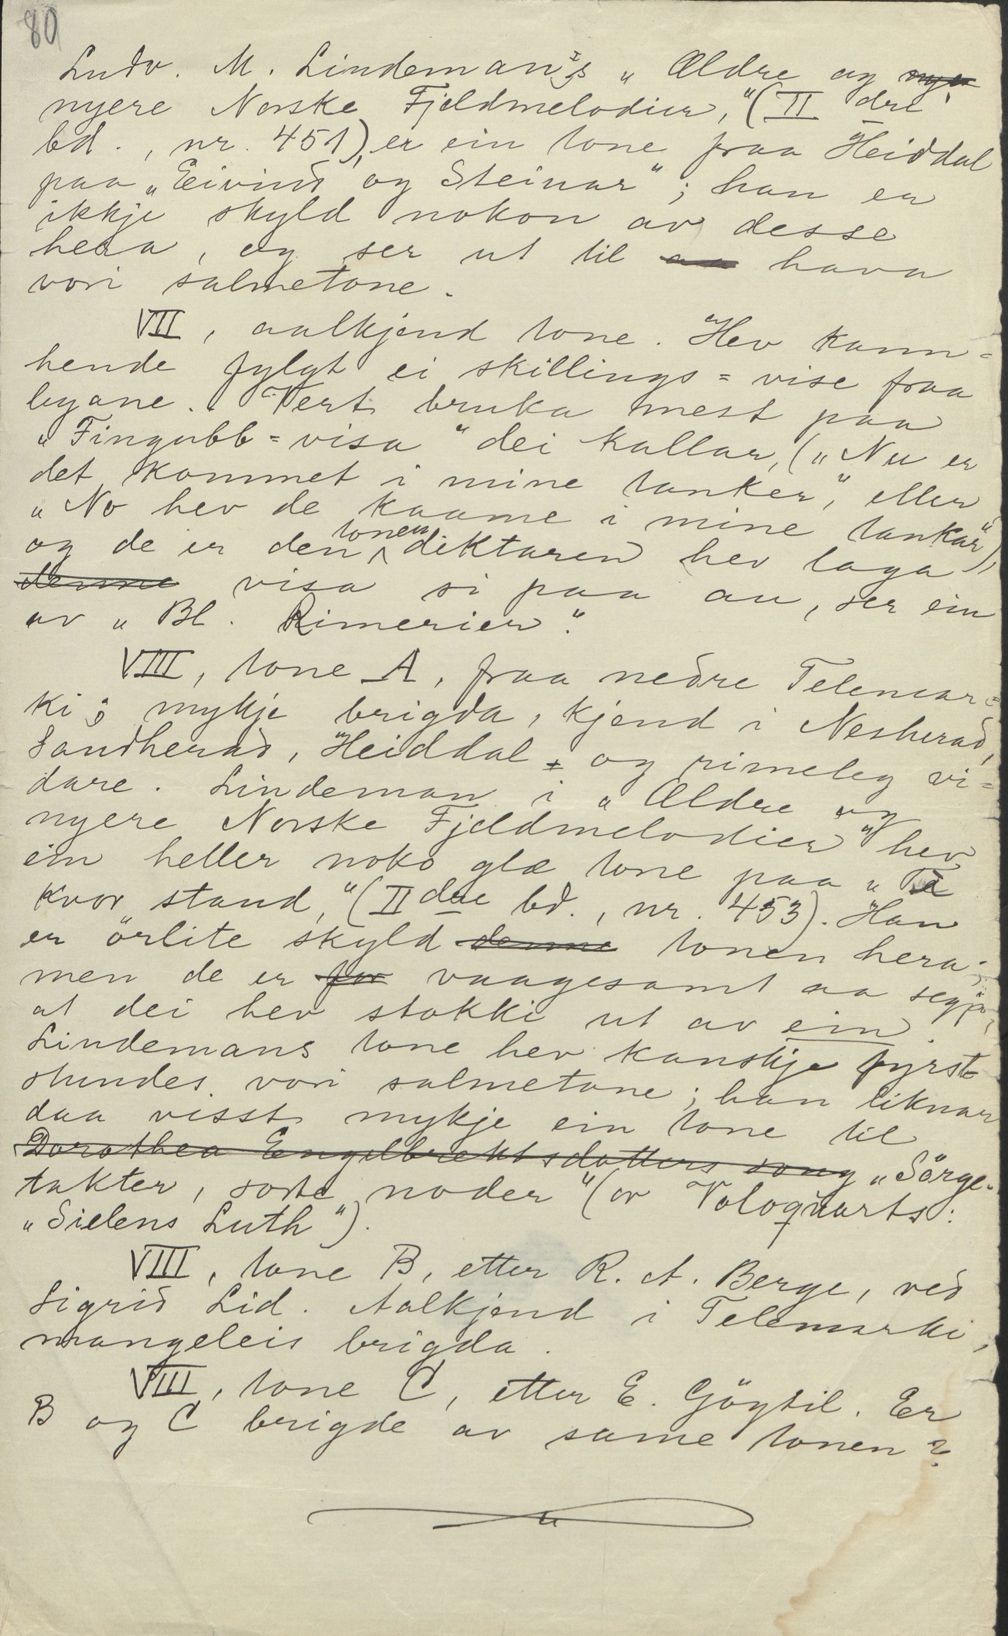 80
Ludv. M. Lindeman's „Ældre og nyer
nyere Norske Fjeldmelodier," (II dre
bd., nr. 451), er ein tone fraa Heiddal
paa „Eivind og Steinar"; han er
ikkje skyld nokon av desse
hera, og ser ut til aa hava
vori salmetone.
VII, aalkjend tone. Hev kann=
hende fylgt ei skillings=vise fraa
byane. Vert bruka mest paa
„Fingubb=visa" dei kallar, („Nu er
det kommet i mine tanker," eller
„No hev de kaame i mine tankar"),
og de er den tonen diktaren hev laga
denne visa si paa au, ser ein
av „Bl. Rimerier."
VIII, tone A, fraa nedre Telemar=
ki; mykje brigda, kjend i Nesherad,
Sandherad, Heiddal og rimeleg vi=
dare. Lindeman i „Ældre og
nyere Norske Fjeldmelodier" hev
ein heller noko glæ tone paa „Te
kvor stand," (II dre bd., nr. 453). Han
er örlite skyld denne tonen hera;
men de er for vaagesamt aa segja,
at dei hev stokki ut av ein.
Lindemans tone hev kanskje fyrst=
stundes vori salmetone; han liknar
daa visst mykje ein tone til
Dorothea Engelbrektsdatters song „Sörge-
takter, sorte noder" (av Voloqvarts:
„Sielens Luth").
VIII, tone B, etter R. A. Berge, ved
Sigrid Lid. Aalkjend i Telemarki,
mangeleis brigda.
VIII, tone C, etter E. Göytil. Er
B og C brigde av same tonen?